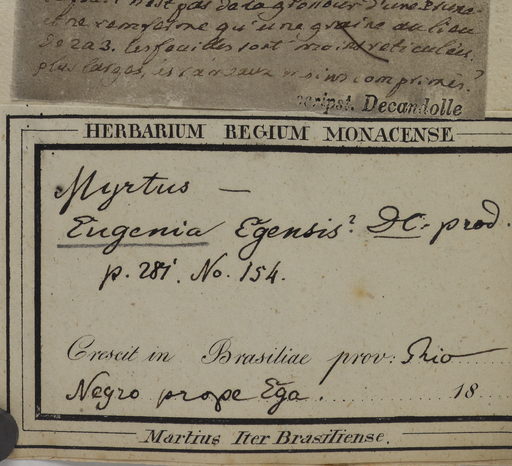 n'est pas de la grosseur d'une Prune
et ne renferme qu'une graine au lieu
de 2 a 3. les feuilles sont moins reticulées
plus larges, les rameaux moins comprimés?
scripst. Decandolle
HERBARIUM REGIUM MONACENSE
Myrtus —
Eugenia Egensis? DC. prod.
p. 281. No. 154.
Crescit in Brasiliae prov: Rio
Negro prope Ega. 18
Martius Iter Brasiliense.